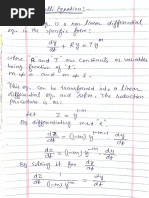 lli Equation:-
eq. is a non linear differential
eq. in the specific form:
dy/dt + Ry = Ty^m
where R and T are constants or variables
being function of 't'.
m ≠ 0 and m ≠ 1.
This eq. can be transformed into a linear
differential eq. and solve. The reduction
procedure is as:
let Z = y^1-m
By differentiating w.r.t 't'.
dz/dt = (1-m) y^-m dy/dt
By solving it for dy/dt
dy/dt = 1/(1-m) y^-m dz/dt